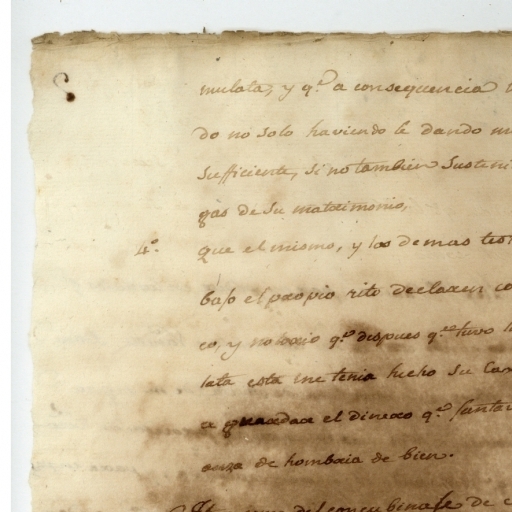 mulata, y q.e a consequencia
do no solo haviendole dando
sufficiente, si no tambien susteni
gas de su matrimonio,
4.o que el mismo, y los demas tes
bajo el propio rito declaren co
co, y notorio q.e despues q.e tuvo
lata esta me tenia hecho su
e guardar el dinero q.e juntar
anza de hombria de bien.
del concubinate de